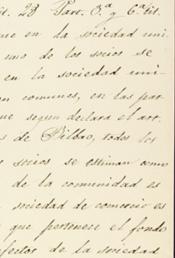 it. 28 Part. 3.ª y 6.ª tit.
que en la sociedad uni
uno de los socios se
en la sociedad uni-
en comunes, en las par
que segun declara el art.
s de Bilbao, todos los
socios se estiman como
de la comunidad es
sociedad de comercio es
que pertenece el fondo
efectos de la sociedad